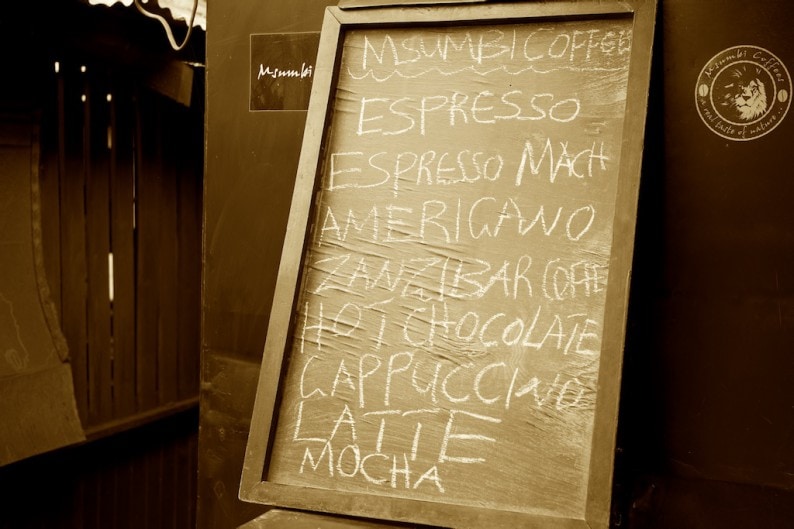 MSUMBI COFFEE
ESPRESSO
ESPRESSO MACH
AMERICANO
ZANZIBAR COFFE
HOT CHOCOLATE
CAPPUCCINO
LATTE
MOCHA
Msumbi
Msumbi Coffees
a real taste of nature